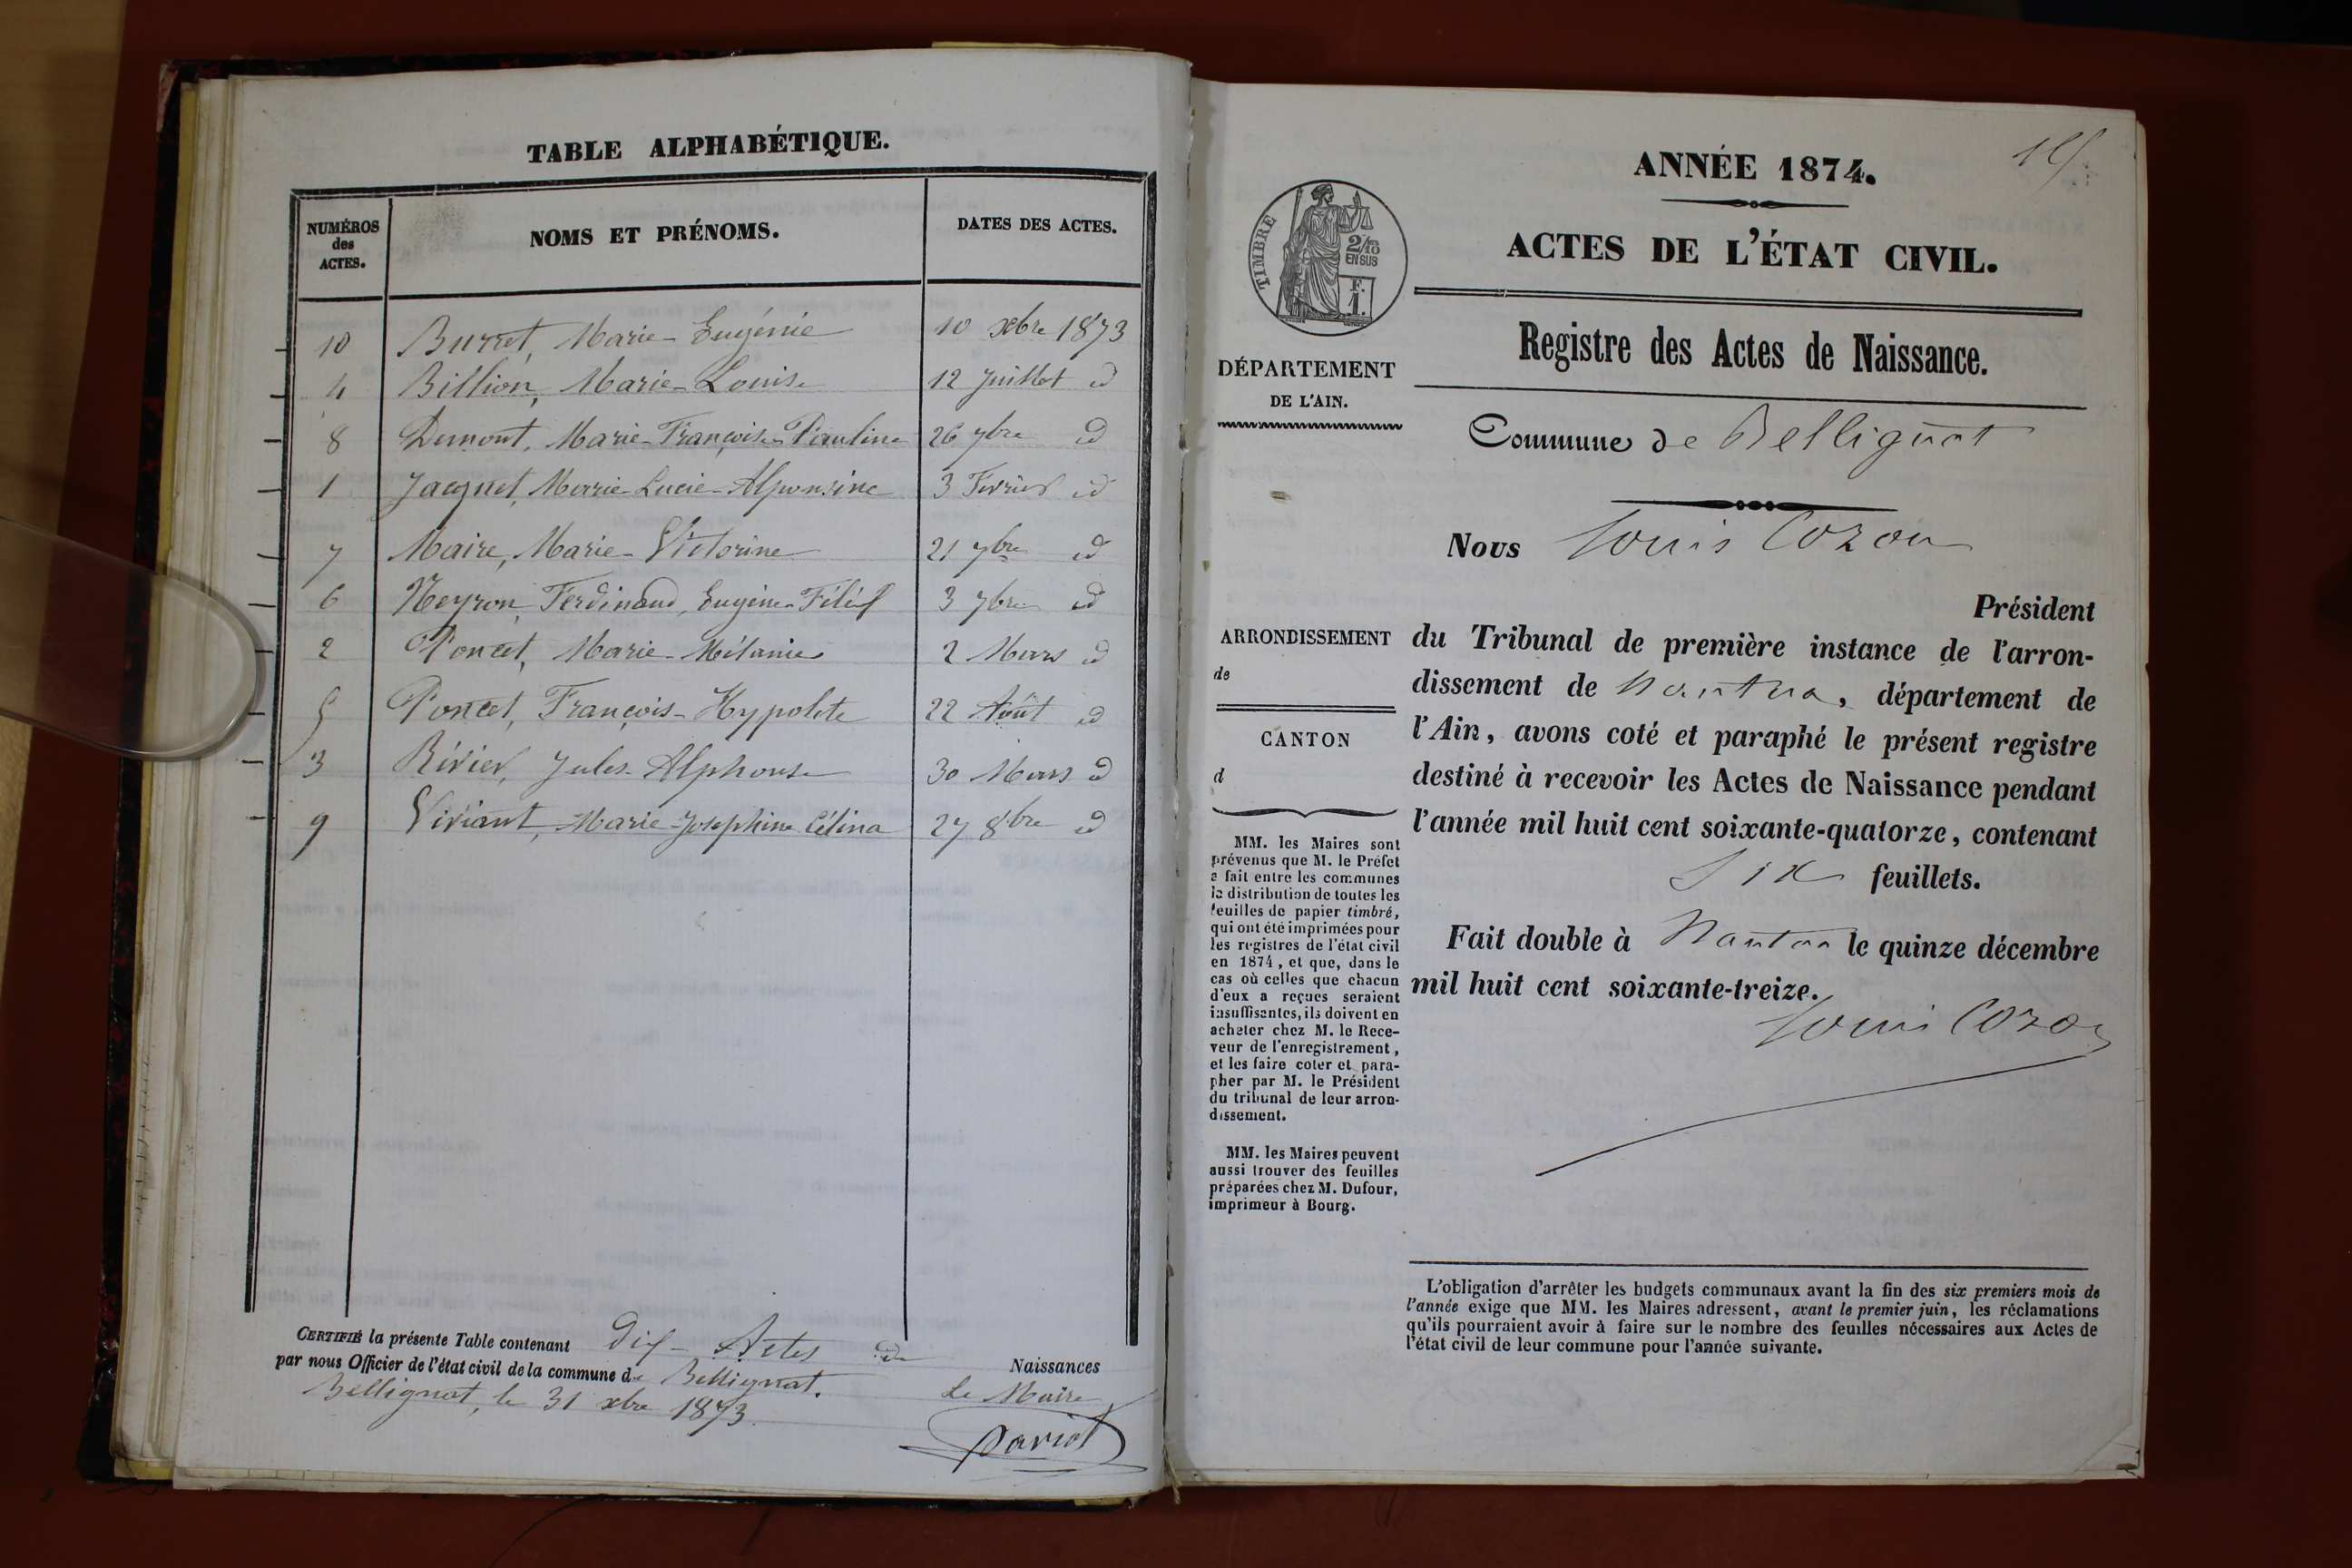 TABLE ALPHABÉTIQUE.
NUMÉROS des ACTES. NOMS ET PRÉNOMS. DATES DES ACTES.
10 Burret, Marie-Eugénie 10 xbre 1873
4 Billion, Marie-Louise 12 Juillet id
8 Dumont, Marie-Françoise-Pauline 26 7bre id
1 Jacquet, Marie-Lucie-Alponsine 3 Février id
7 Maire, Marie-Victorine 21 7bre id
6 Neyron, Ferdinand, Eugène 3 7bre id
2 Poncet, Marie-Mélanie 2 Mars id
5 Poncet, François-Hypolite 22 Août id
3 Rivier, Jules-Alphonse 30 Mars id
9 Viviant, Marie-Josephine Célina 27 8bre id
CERTIFIÉ la présente Table contenant dix Actes de Naissances
par nous Officier de l'état civil de la commune de Bellignat.
Bellignat, le 31 xbre 1873.
Le Maire
Dariot
ANNÉE 1874.
ACTES DE L'ÉTAT CIVIL.
TIMBRE
2/10
EN SUS
F.
1.
Registre des Actes de Naissance.
DÉPARTEMENT
DE L'AIN.
Commune de Bellignat
Nous Louis Cozon
Président
ARRONDISSEMENT
de
CANTON
d
du Tribunal de première instance de l'arron-
dissement de Nantua, département de
l'Ain, avons coté et paraphé le présent registre
destiné à recevoir les Actes de Naissance pendant
l'année mil huit cent soixante-quatorze, contenant
Six feuillets.
Fait double à Nantua le quinze décembre
mil huit cent soixante-treize.
Louis Cozon
MM. les Maires sont
prévenus que M. le Préfet
a fait entre les communes
la distribution de toutes les
feuilles de papier timbré,
qui ont été imprimées pour
les registres de l'état civil
en 1874, et que, dans le
cas où celles que chacun
d'eux a reçues seraient
insuffisantes, ils doivent en
acheter chez M. le Rece-
veur de l'enregistrement,
et les faire coter et para-
pher par M. le Président
du tribunal de leur arron-
dissement.
MM. les Maires peuvent
aussi trouver des feuilles
préparées chez M. Dufour,
imprimeur à Bourg.
L'obligation d'arrêter les budgets communaux avant la fin des six premiers mois de
l'année exige que MM. les Maires adressent, avant le premier juin, les réclamations
qu'ils pourraient avoir à faire sur le nombre des feuilles nécessaires aux Actes de
l'état civil de leur commune pour l'année suivante.